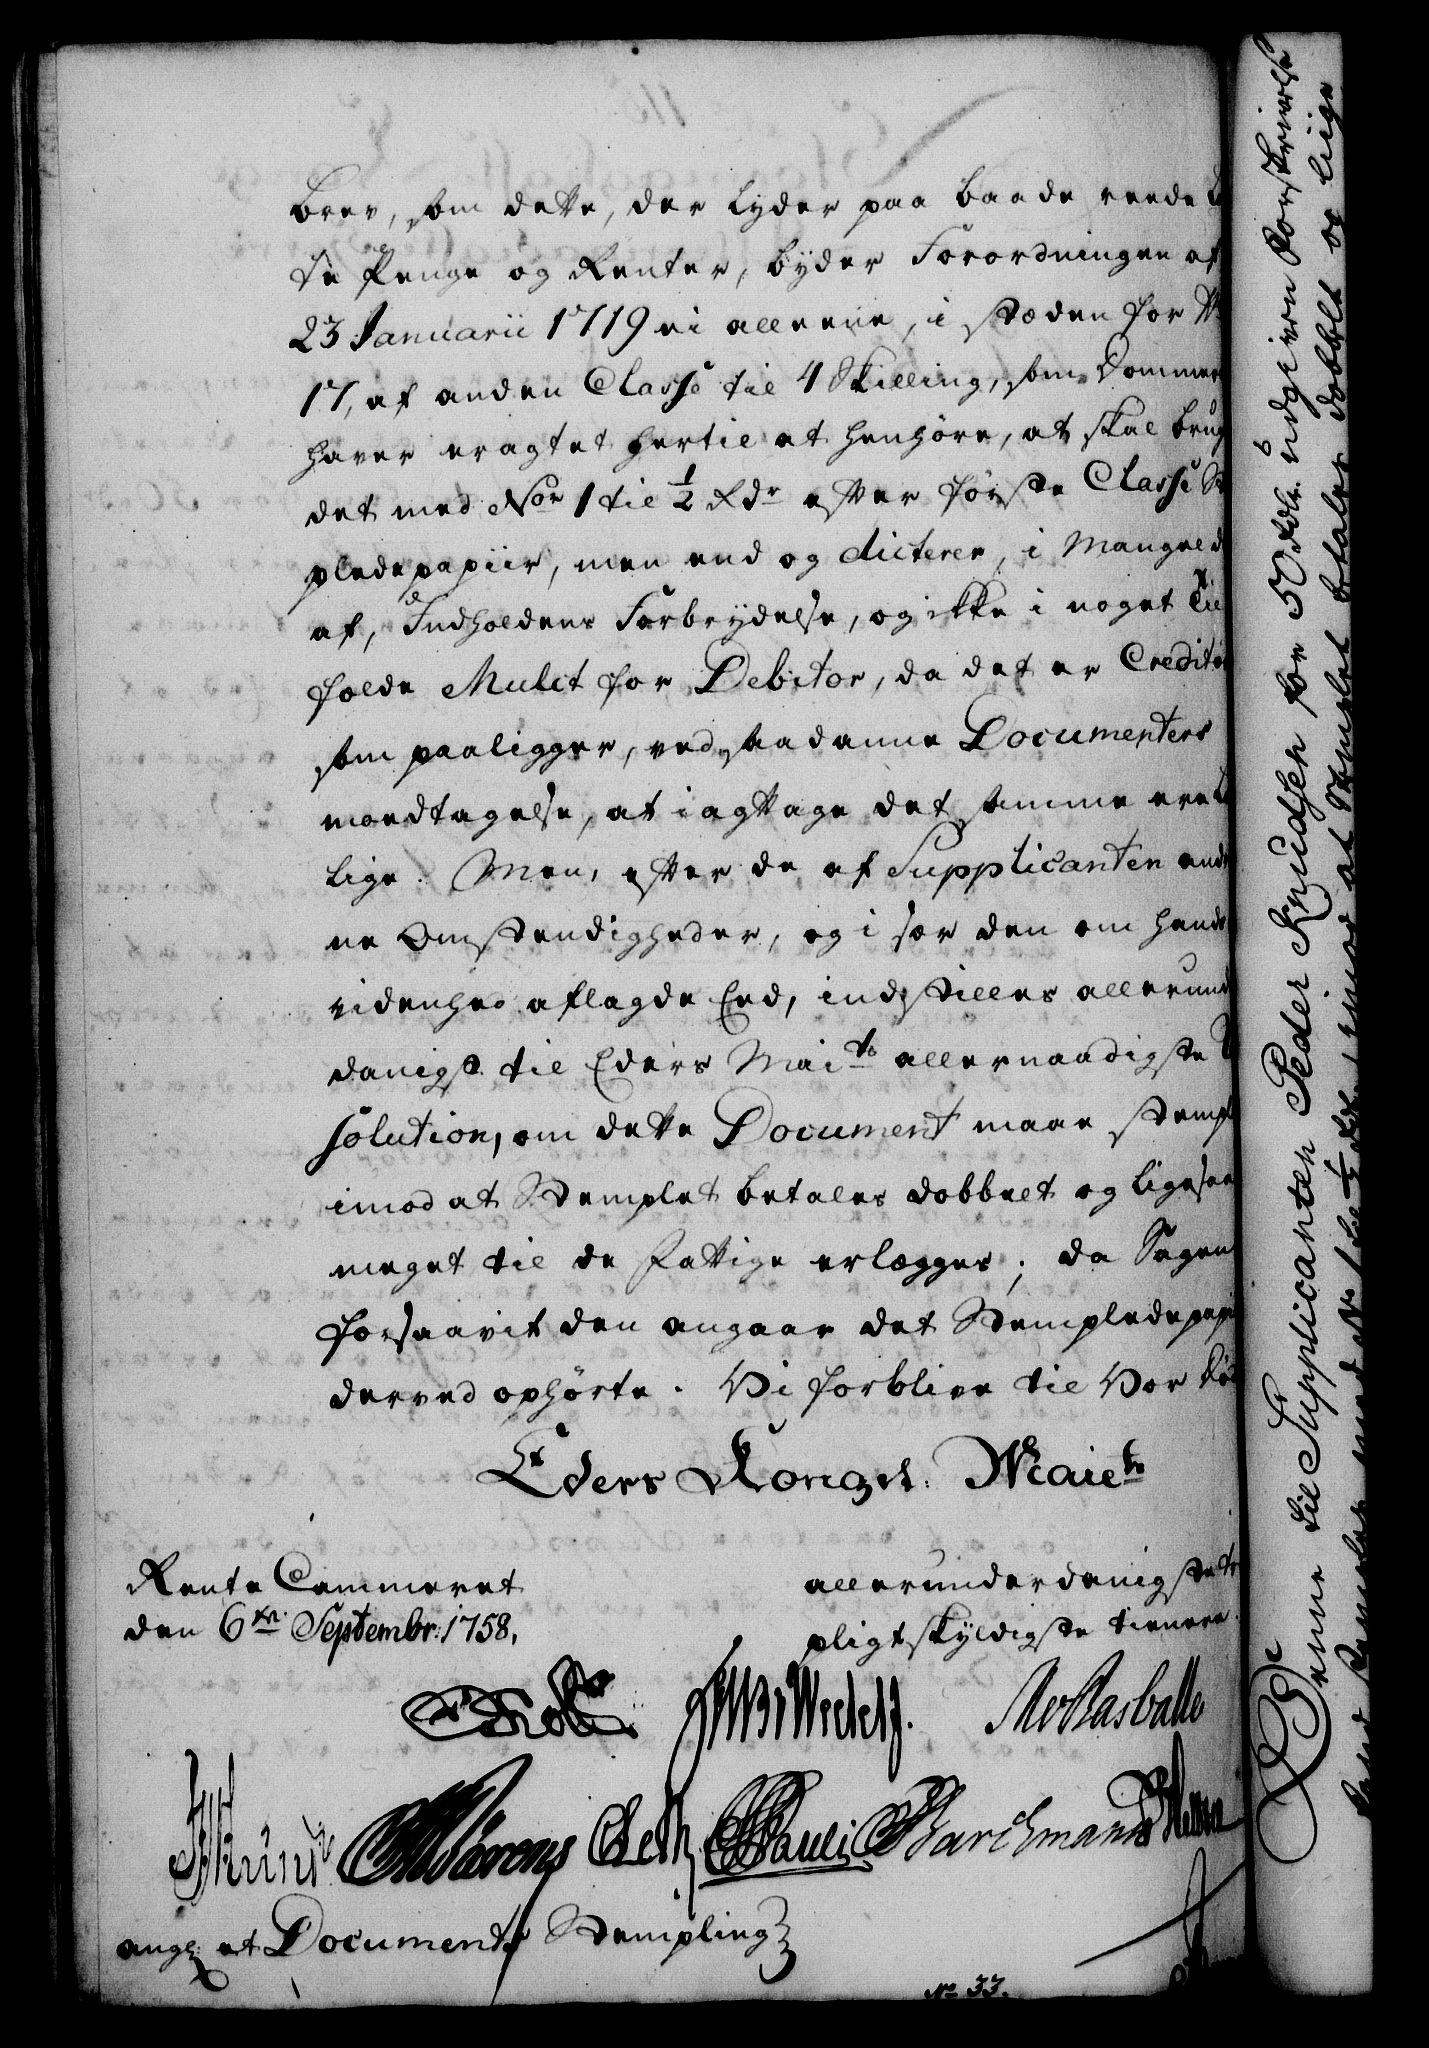 brev, som dette, der lyder paa baade reede
te Penge og Renter, byder Forordningen af
23 Januarii 1719 ei alleene, i stæden for
17, af anden Classe til 4 Skilling, som Dommer
haver eragtet hertil at henhøre, at skal brug
det med No 1 til ½ Rdr efter første Classe
pledepapiir, men end og dicterer, i Mangel
af, Indholdens Forbrydelse, og ikke i noget Til
fælde Mulct for Debitor, da det er Creditor
som paaligger, ved saadanne Documenters
modtagelse, at iagttage det samme
lige. Men, efter de af Supplicanten
ne Omstendigheder, og i sær den om hans
videnhed aflagde Eed, indstilles allerund
danigst til Eders Maits allernaadigste
solution, om dette Document maae stempl
imod at Stemplet betales dobbelt og ligesaa
meget til de Fattige erlægges; da Sagen
forsaavit den angaar det Stempledepapi
derved ophørte. Vi forblive til Vor Død
Eders Kongel. Maiets
Rente Cammeret
den 6te Septembr: 1758.
allerunderdanigste
pligtskyldigste tienere.
Wedelf.
Pauli Barchmann
ang: et Documents Stempling
No 33.
Denne til Supplicanten Peder Knudsen for 50 Rdlr. udgiven Forskrivelse
imod at Stemplet betales dobbelt og liige